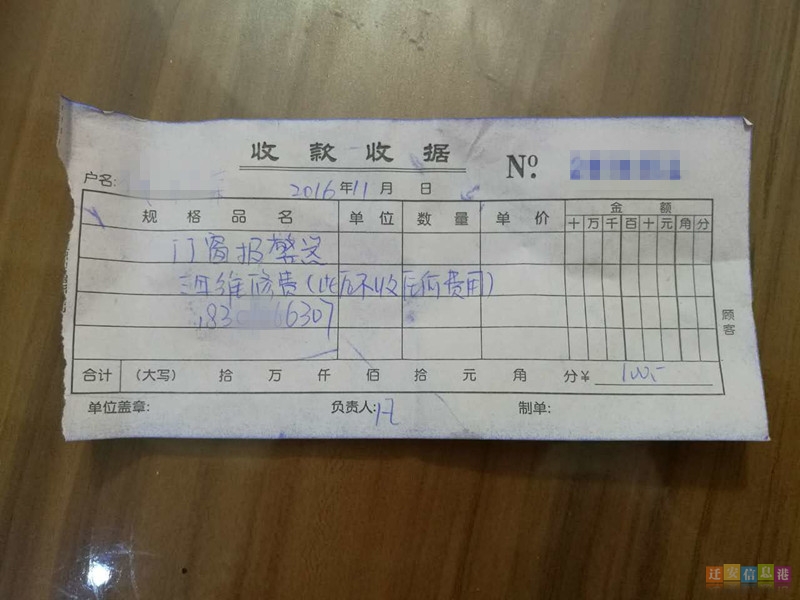 收款收据
No.
户名:
2016年11月 日
规格品名 单位 数量 单价 金额
十万千百十元角分
门窗报警器
三年维修费(此后不收任何费用)
6307
顾客
合计 (大写) 拾 万 仟 佰 拾 元 角 分¥ 100.-
单位盖章: 负责人: 制单:
迁安信息港